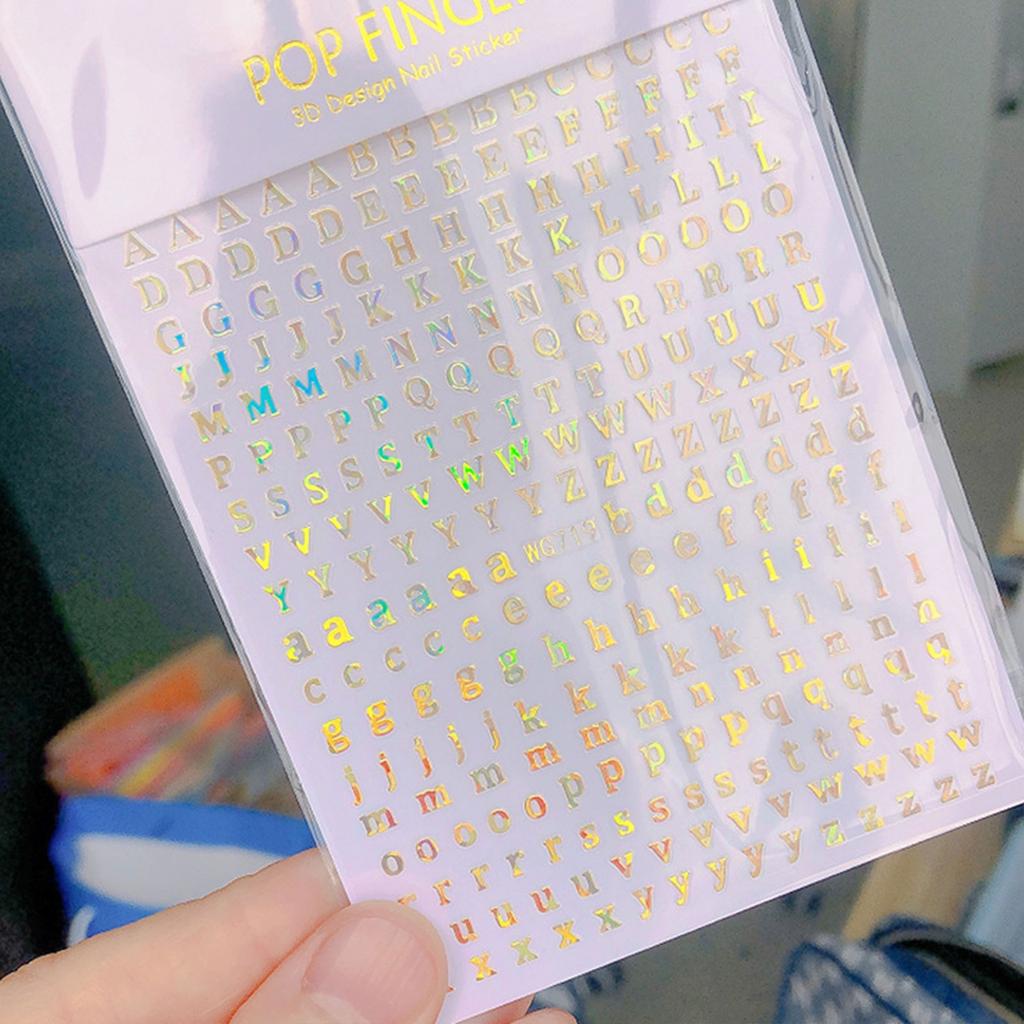 POP FINGE
3D Design Nail Sticker
A A A A A B B B B B C C C C C
D D D D D E E E E E F F F F F
G G G G G H H H H H I I I I I
J J J J J K K K K K L L L L L
M M M M N N N N N O O O O O
P P P P P Q Q Q Q Q R R R R R
S S S S S T T T T T U U U U U
V V V V V W W W W W X X X X
Y Y Y Y Y Y Y Z Z Z Z Z Z Z Z
a a a a a a WG719 b d d d d d d
c c c c c e e e e e f f f f f
g g g g g h h h h h i i i i i
j j j j j k k k k k l l l l l
m m m m m m n n n n n n
o o o o o p p p p p q q q q q
r r r r r s s s s s s t t t t t t
u u u u v v v v v w w w w
x x x x y y y y y z z z z z